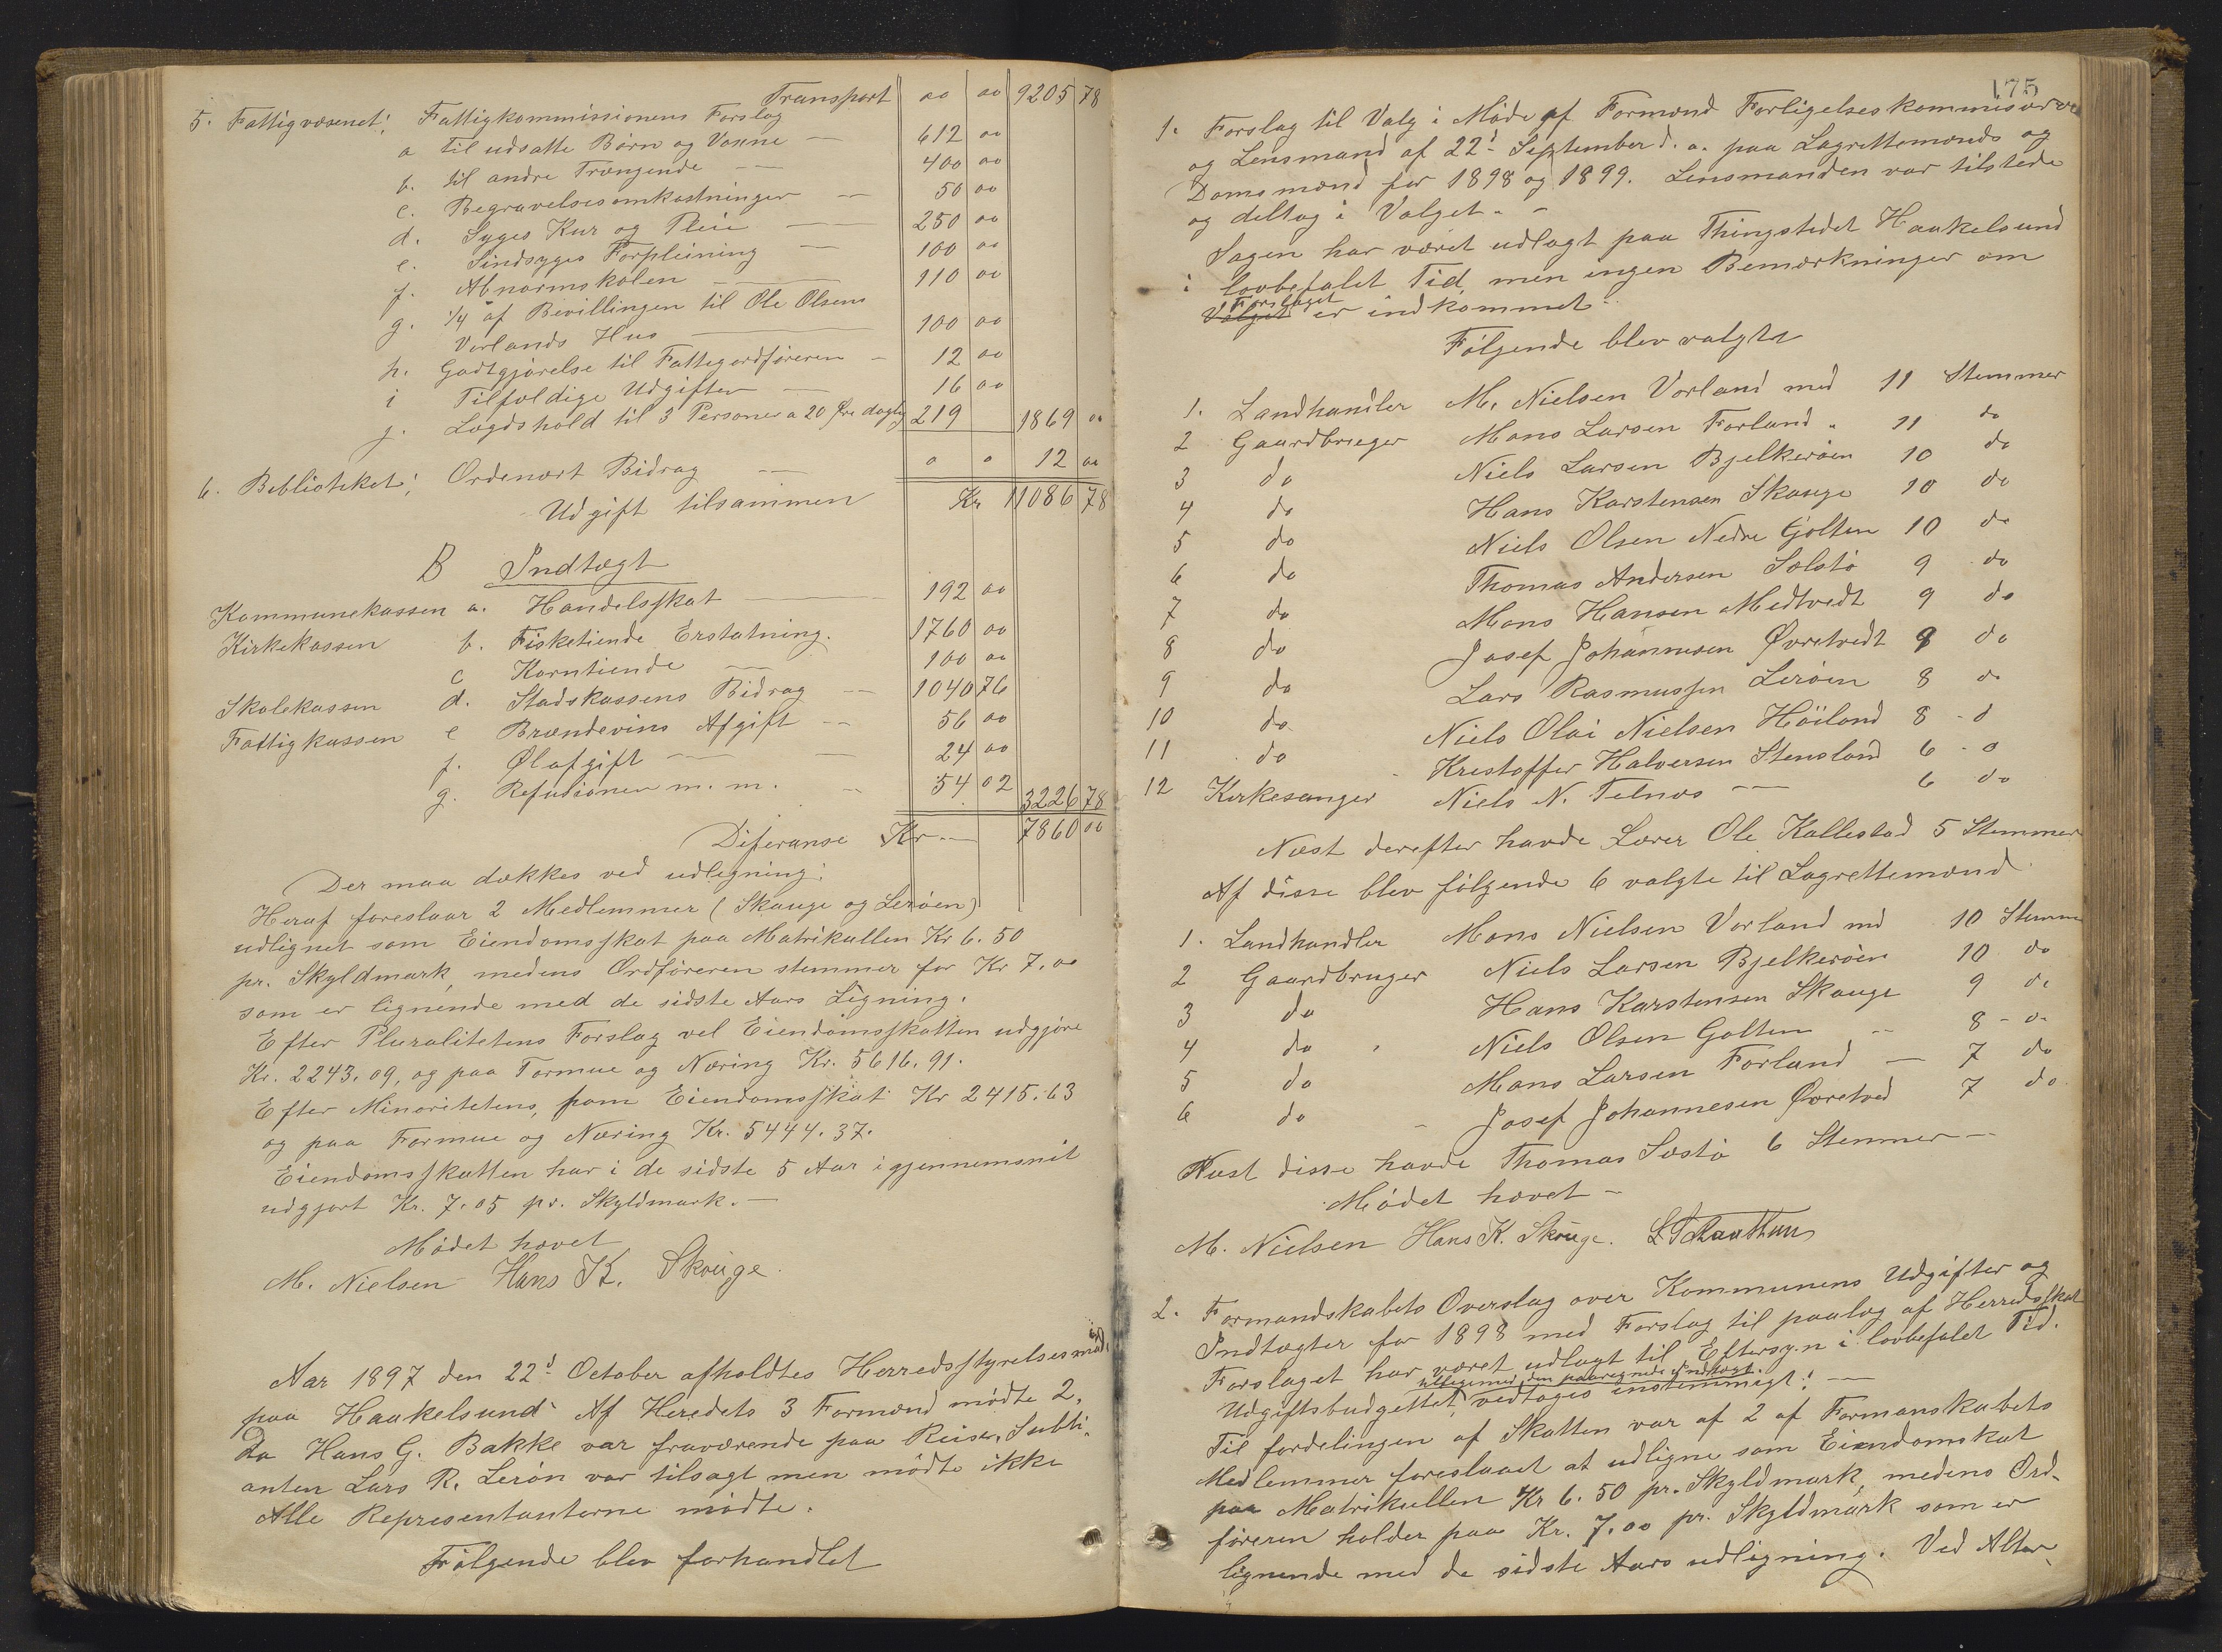 Transport oo oo 9205 78
5. Fattigvæsenet; Fattigkommissionens Forslag
a til udsatte Børn og Voxne — 612 oo
b. til andre Trængende — 400 oo
c. Begravelsesomkostninger — 50 oo
d. Syges Kur og Pleie — 250 oo
e. Sindsyges Forpleining — 100 oo
f. Abnormskolen — 110 oo
g. 1/4 af Bevillingen til Ole Olsens
Vorlands Hus — 100 oo
h. Godtgjørelse til Fattigordføreren — 12 oo
i Tilfældige Udgifter — 16 oo
j. Lægdshold til 3 Personer a 20 Øre daglig 219 1869 oo
6. Bibliotiket; Ordenært Bidrag — o o 12 oo
Udgift tilsammen Kr 11086 78
B Indtægt
Kommunekassen a. Handelsskat — 192 oo
Kirkekassen b. Fisketiende Erstatning. 1760 oo
c Korntiende — 100 oo
Skolekassen d. Stadskassens Bidrag — 1040 76
Fattigkassen e Brændevins Afgift — 56 oo
f. Ølafgift — 24 oo
g. Refusioner m. m. — 54 02 3226 78
Diferanse Kr — 7860 oo
Der maa dækkes ved udligning;
Heraf foreslaar 2 Medlemmer (Skauge og Lerøen)
udlignet som Eiendomsskat paa Matrikullen Kr 6. 50
pr. Skyldmark, medens Ordføreren stemmer for Kr 7. oo
som er lignende med de sidste Aars Ligning.
Efter Pluralitetens Forslag vel Eiendomsskatten udgjøre
Kr. 2243. 09, og paa Formue og Næring Kr. 5616. 91.
Efter Minoritetens, som Eiendomsskat Kr 2415. 63
og paa Formue og Næring Kr. 5444. 37.
Eiendomsskatten har i de sidste 5 Aar i gjennemsnit
udgjort Kr. 7. 05 pr. Skyldmark. —
Mødet hævet
M. Nielsen Hans K. Skouge.
Aar 1897 den 22d October afholdtes Herredsstyrelsesmøde
paa Haakelsund. Af Heredets 3 Formænd mødte 2,
da Hans G. Bakke var fraværende paa Reiser, Subli-
anten Lars R. Lerøn var tilsagt men mødte ikke
Alle Representanterne mødte.
Følgende blev forhandlet
175
1. Forslag til Valg i Møde af Formænd Forligelseskommisærer
og Lensmand af 22d September d. a. paa Lagrettemænds og
Domsmænd for 1898 og 1899. Lensmanden var tilstede
og deltog i Valget. —
Sagen har været udlagt paa Thingstedet Haakelsund
i lovbefalet Tid, men ingen Bemærkninger om
Forslaget
Valget er indkommet.
Følgende blev valgte
1. Landhandler M. Nielsen Vorland med 11 Stemmer
2 Gaardbruger Mons Larsen Forland " 11 do
3 do Niels Larsen Bjelkerøen 10 do
4 do Hans Karstensen Skauge 10 do
5 do Niels Olsen Nedre Golten 10 do
6 do Thomas Andersen Solstø 9 do
7 do Mons Hansen Midtvedt 9 do
8 do Josef Johannesen Øvretvedt 8 do
9 do Lars Rasmussen Lerøen 8 do
10 do Niels Olai Nielsen Høiland 8 - d
11 do Kristoffer Halversen Stensland 6 - o
12 Kirkesanger Niels N. Telnæs — 6 do
Næst derefter havde Lærer Ole Kallestad 5 Stemmer
Af disse blev følgende 6 valgte til Lagrettemænd
1. Landhandler Mons Nielsen Vorland md 10 Stemm
2 Gaardbruger Niels Larsen Bjelkerøen 10 do
3 do Hans Karstensen Skauge 9 do
4 do Niels Olsen Golten — 8 - o.
5 do Mons Larsen Forland — 7 do
6 do Josef Johannesen Øvretved 7 do
Næst disse havde Thomas Sæstø 6 Stemmer —
Mødet hævet —
M. Nielsen Hans K. Skouge.
2. Formandskabets Overslag over Kommunens Udgifter og
Indtægter for 1898 med Forslag til paalæg af Herredsskat
Forslaget har været udlagt til Eftersyn i lovbefalet Tid.
tilligemed den paaregnede Indtægt.
Udgiftsbudgettet, vedtoges instemmigt: —
Til fordelingen af Skatten var af 2 af Formanskabets
Medlemmer foreslaaet at udligne som Eiendomskat
paa Matrikullen Kr 6. 50 pr. Skyldmark, medens Ord-
føreren holder paa Kr. 7. oo pr. Skyldmark som er
lignende med de sidste Aars udligning. Ved Alter-